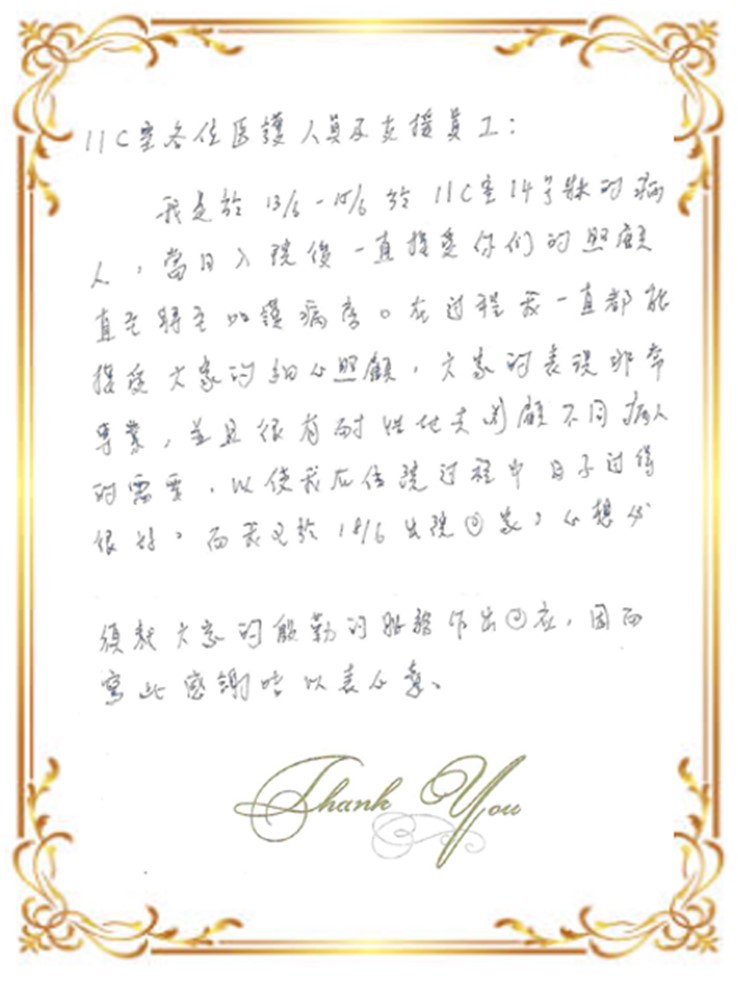 11C室各位医護人員及支援員工：
我是於 13/6 - 15/6 於 11C室14号牀的病
人，當日入院後一直接受你们的照顧
直至轉至 病房。在过程我一直都能
接受大家的細心照顧，大家的表現非常
專業，並且很有耐性地去 顧不同病人
的需要，以使我在住院过程中日子过得
很好。而我已於 18/6 出院回家，心想必
須就大家的殷勤的服務作出回应，因而
寫此感謝咭以表心意。
Thank You